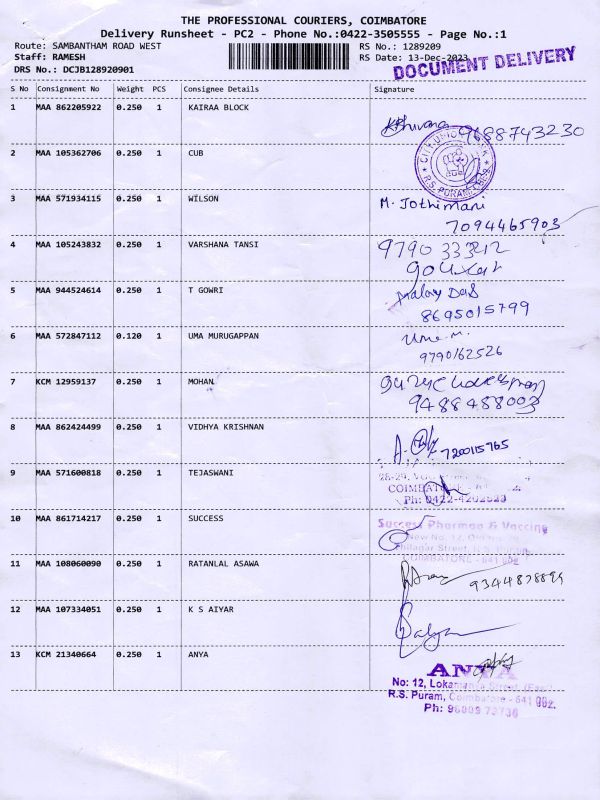 THE PROFESSIONAL COURIERS, COIMBATORE
Delivery Runsheet - PC2 - Phone No.:0422-3505555 - Page No.:1
Route: SAMBANTHAM ROAD WEST
RS No.: 1289209
Staff: RAMESH
RS Date: 13-Dec-2023
DOCUMENT DELIVERY
DRS No.: DCJB128920901
S No Consignment No Weight PCS Consignee Details Signature
1 MAA 862205922 0.250 1 KAIRAA BLOCK
9688743230
2 MAA 105362706 0.250 1 CUB
CITY UNION BANK
R.S. PURAM, CBE-2
3 MAA 571934115 0.250 1 WILSON M. Jothimani
7094465903
4 MAA 105243832 0.250 1 VARSHANA TANSI
5 MAA 944524614 0.250 1 T GOWRI
8695015799
6 MAA 572847112 0.120 1 UMA MURUGAPPAN Uma M.
9790162526
7 KCM 12959137 0.250 1 MOHAN
9488488003
8 MAA 862424499 0.250 1 VIDHYA KRISHNAN
7200115765
9 MAA 571600818 0.250 1 TEJASWANI
10 MAA 861714217 0.250 1 SUCCESS Success Pharmaa & Vaccine
COIMBATORE - 641 002
11 MAA 108060090 0.250 1 RATANLAL ASAWA
12 MAA 107334051 0.250 1 K S AIYAR
13 KCM 21340664 0.250 1 ANYA
ANYA
No: 12, Lokamanya Street, (East)
R.S. Puram, Coimbatore - 641 002.
Ph: